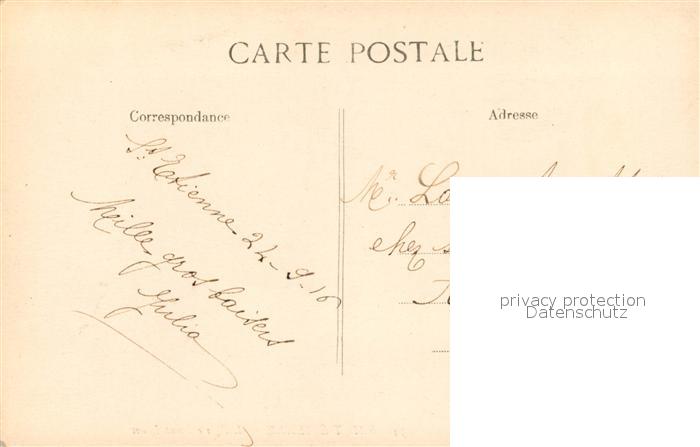 CARTE POSTALE
Correspondance
St. Etienne 24-9-16
Meilles gros baisers
Julia
Adresse
Mr.
chez
privacy protection
Datenschutz